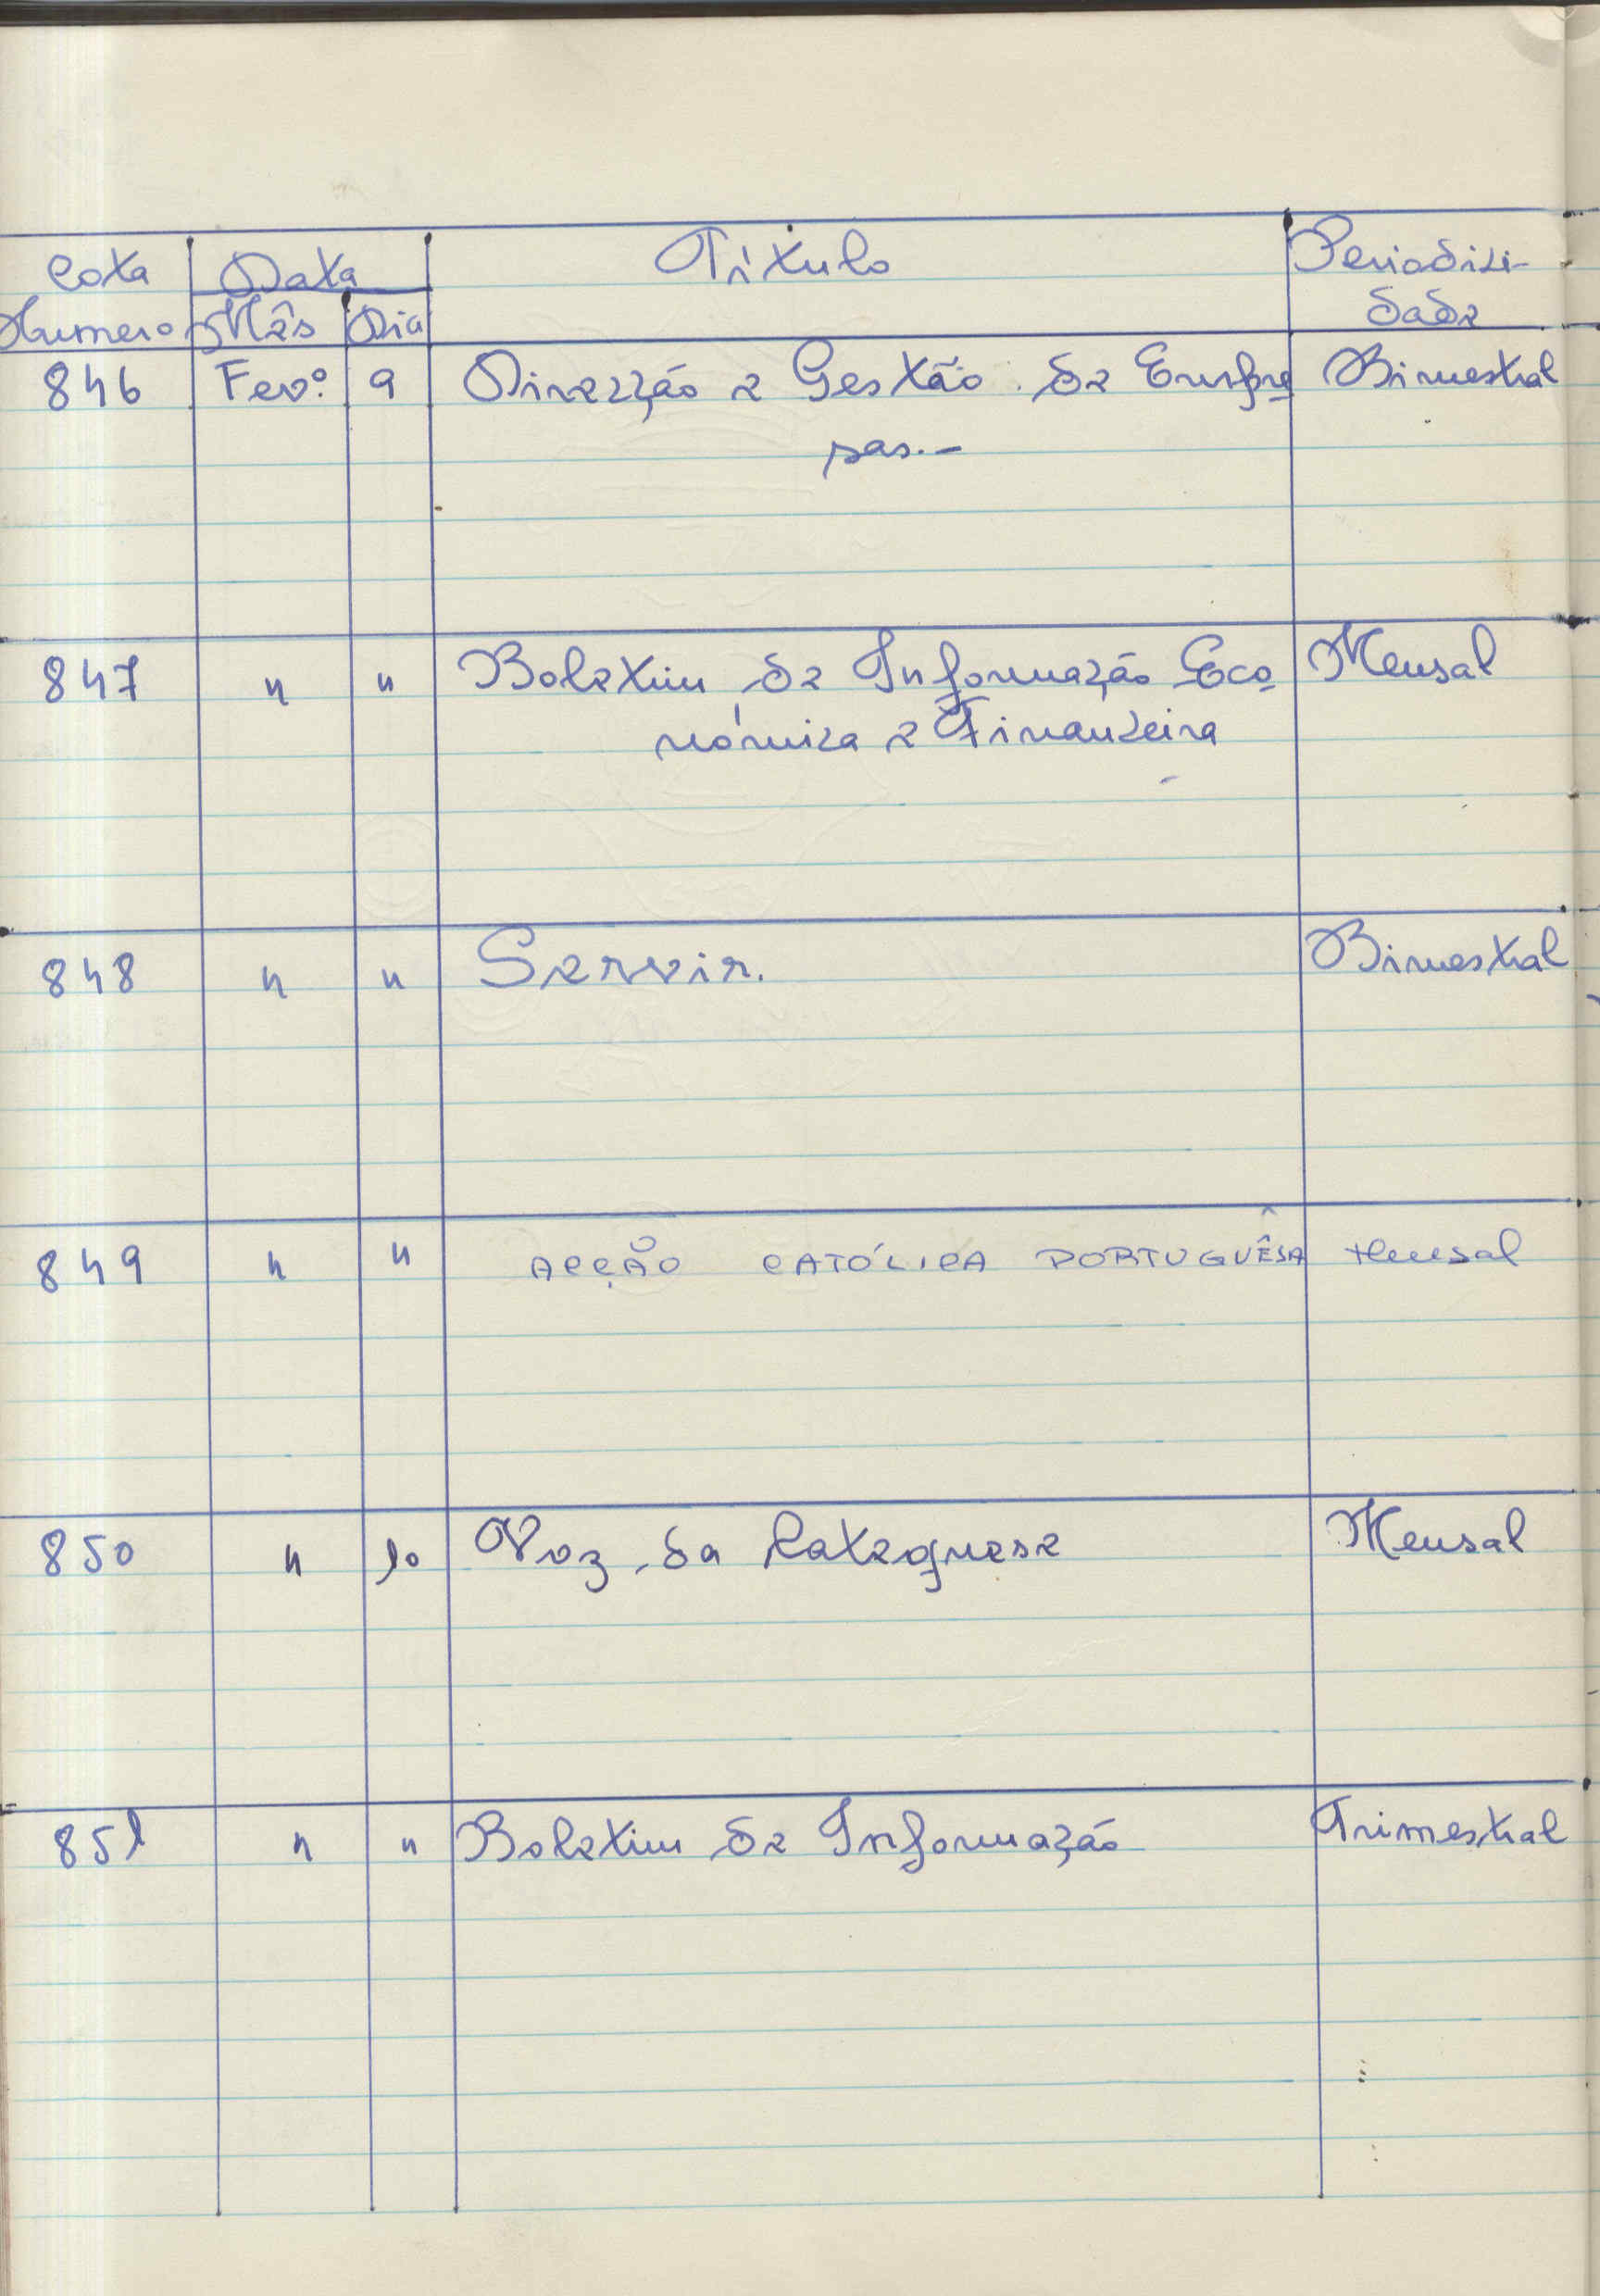 Cota Data Título Periodici-
Numero Mês Dia dade
846 Fev.º 9 Direcção e Gestão de Empre
sas.-
Bimestral
847 " " Boletim de Informação Eco
nómica e Financeira
Mensal
848 " " Servir. Bimestral
849 " " ACÇÃO CATÓLICA PORTUGUÊSA Mensal
850 " 10 Voz da Catequese Mensal
851 " " Boletim de Informação Trimestral